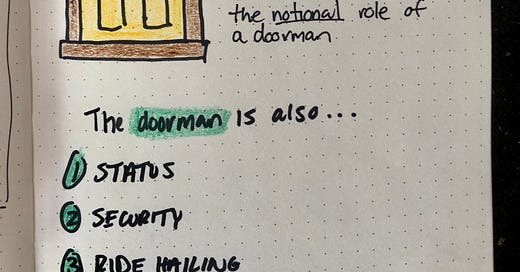 the notional role of
a doorman
The doorman is also...
1 STATUS
2 SECURITY
3 RIDE HAILING